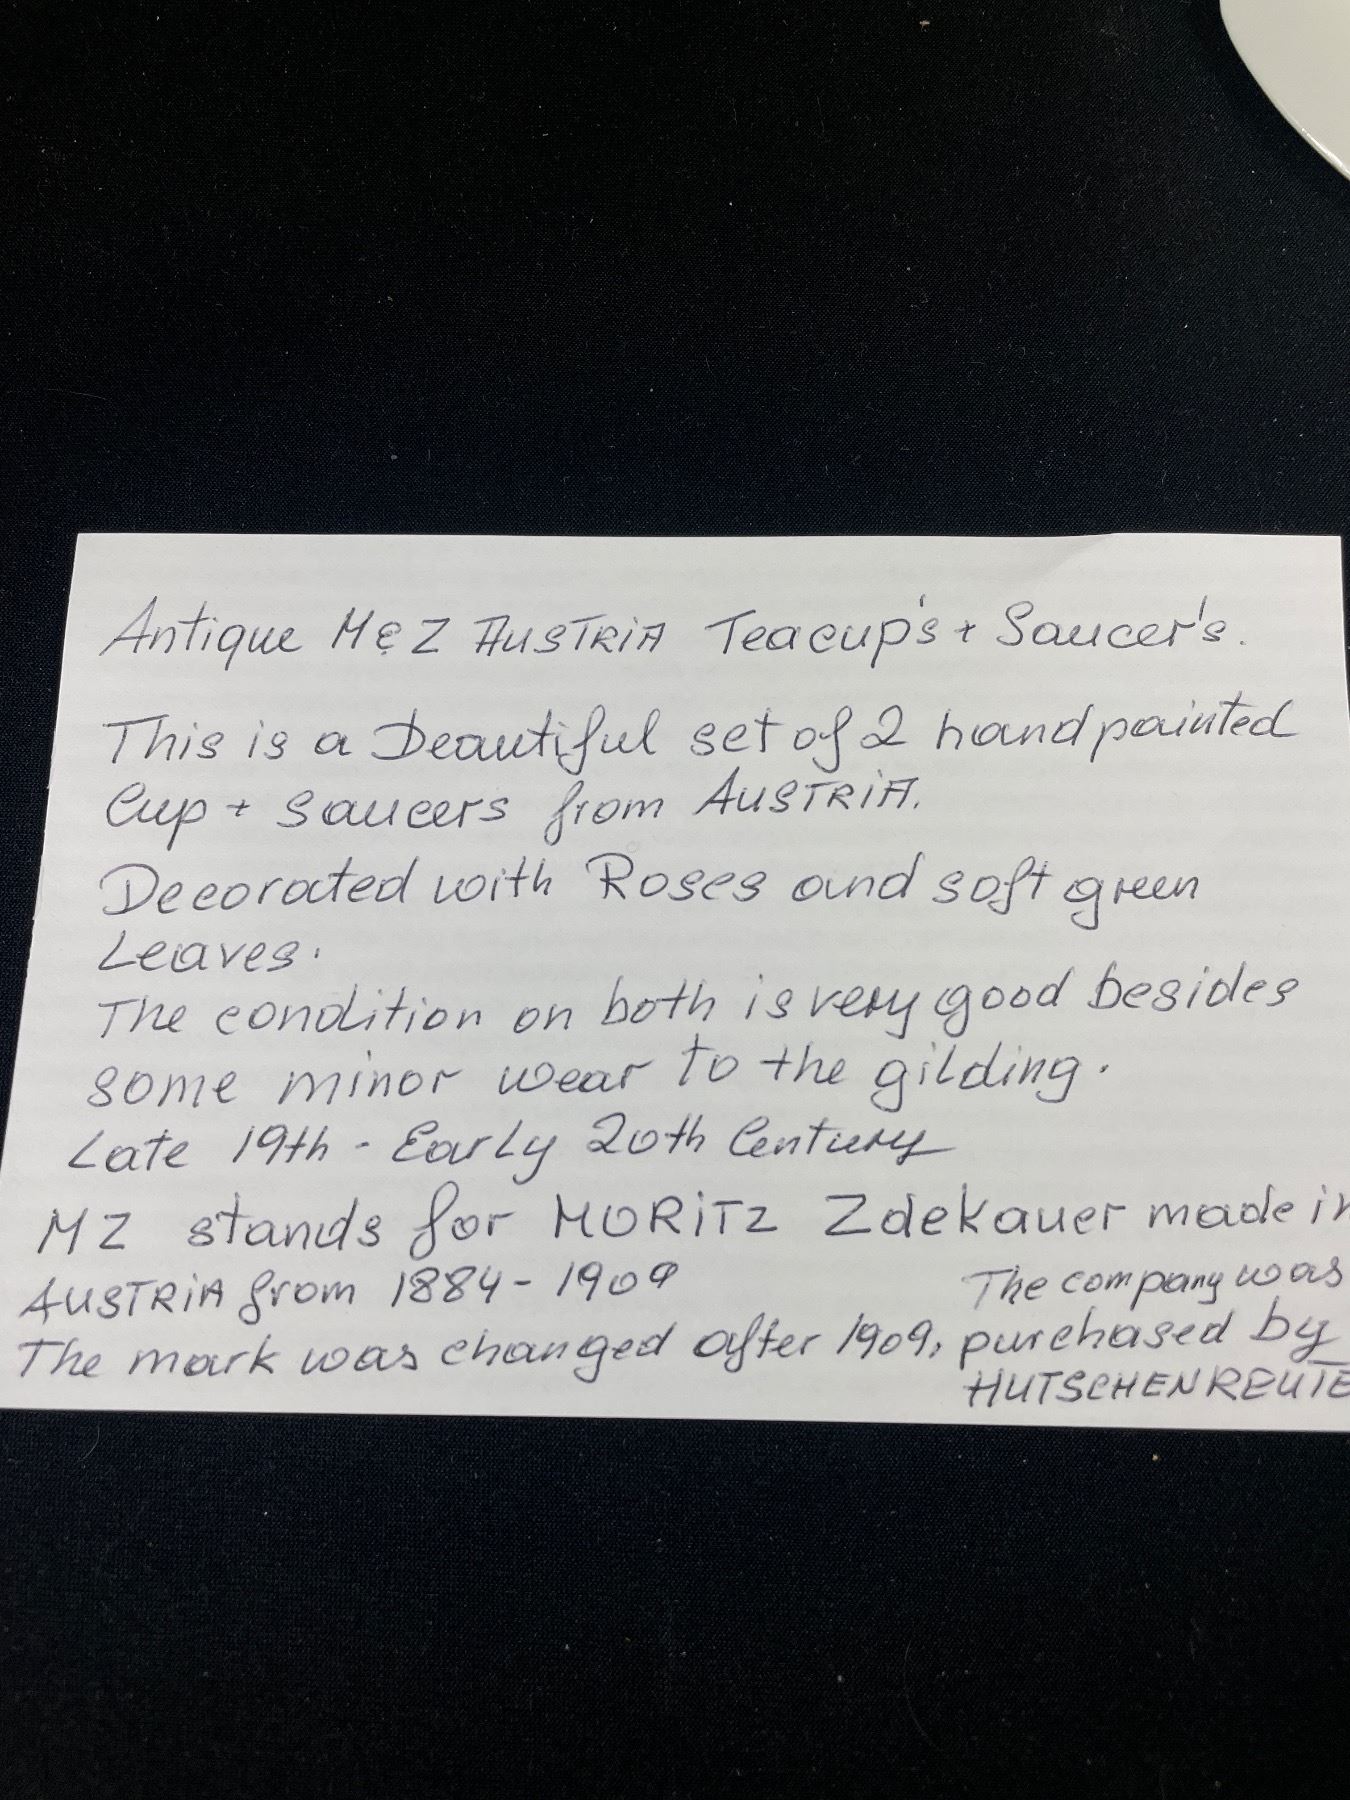 Antique M&Z AUSTRIA Teacup's + Saucer's.
This is a Beautiful set of 2 handpainted
Cup + Saucers from AUSTRIA.
Decorated with Roses and soft green
Leaves.
The condition on both is very good besides
some minor wear to the gilding.
Late 19th - Early 20th Century
MZ stands for MORITZ Zdekauer made in
AUSTRIA from 1884-1909
The mark was changed after 1909.
The company was
purchased by
HUTSCHENREUTE